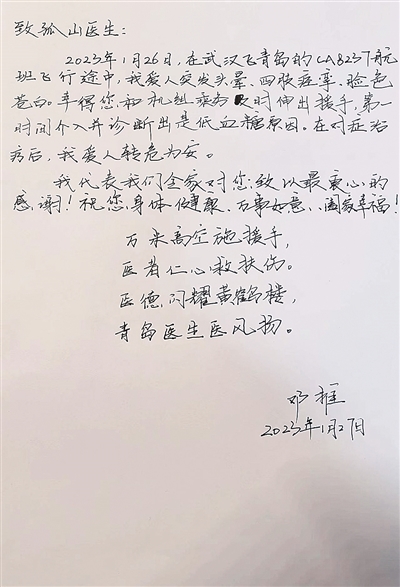 致孤山医生:
2023年1月26日,在武汉飞青岛的CA8237航
班飞行途中,我爱人突发头晕、四肢痉挛、脸色
苍白。幸得您和机组乘务及时伸出援手,第一
时间介入并诊断出是低血糖原因。在对症治
疗后,我爱人转危为安。
我代表我们全家对您致以最衷心的
感谢!祝您身体健康、万事如意、阖家幸福!
万米高空施援手,
医者仁心救扶伤。
医德闪耀黄鹤楼,
青岛医生医风扬。
邓
2023年1月27日